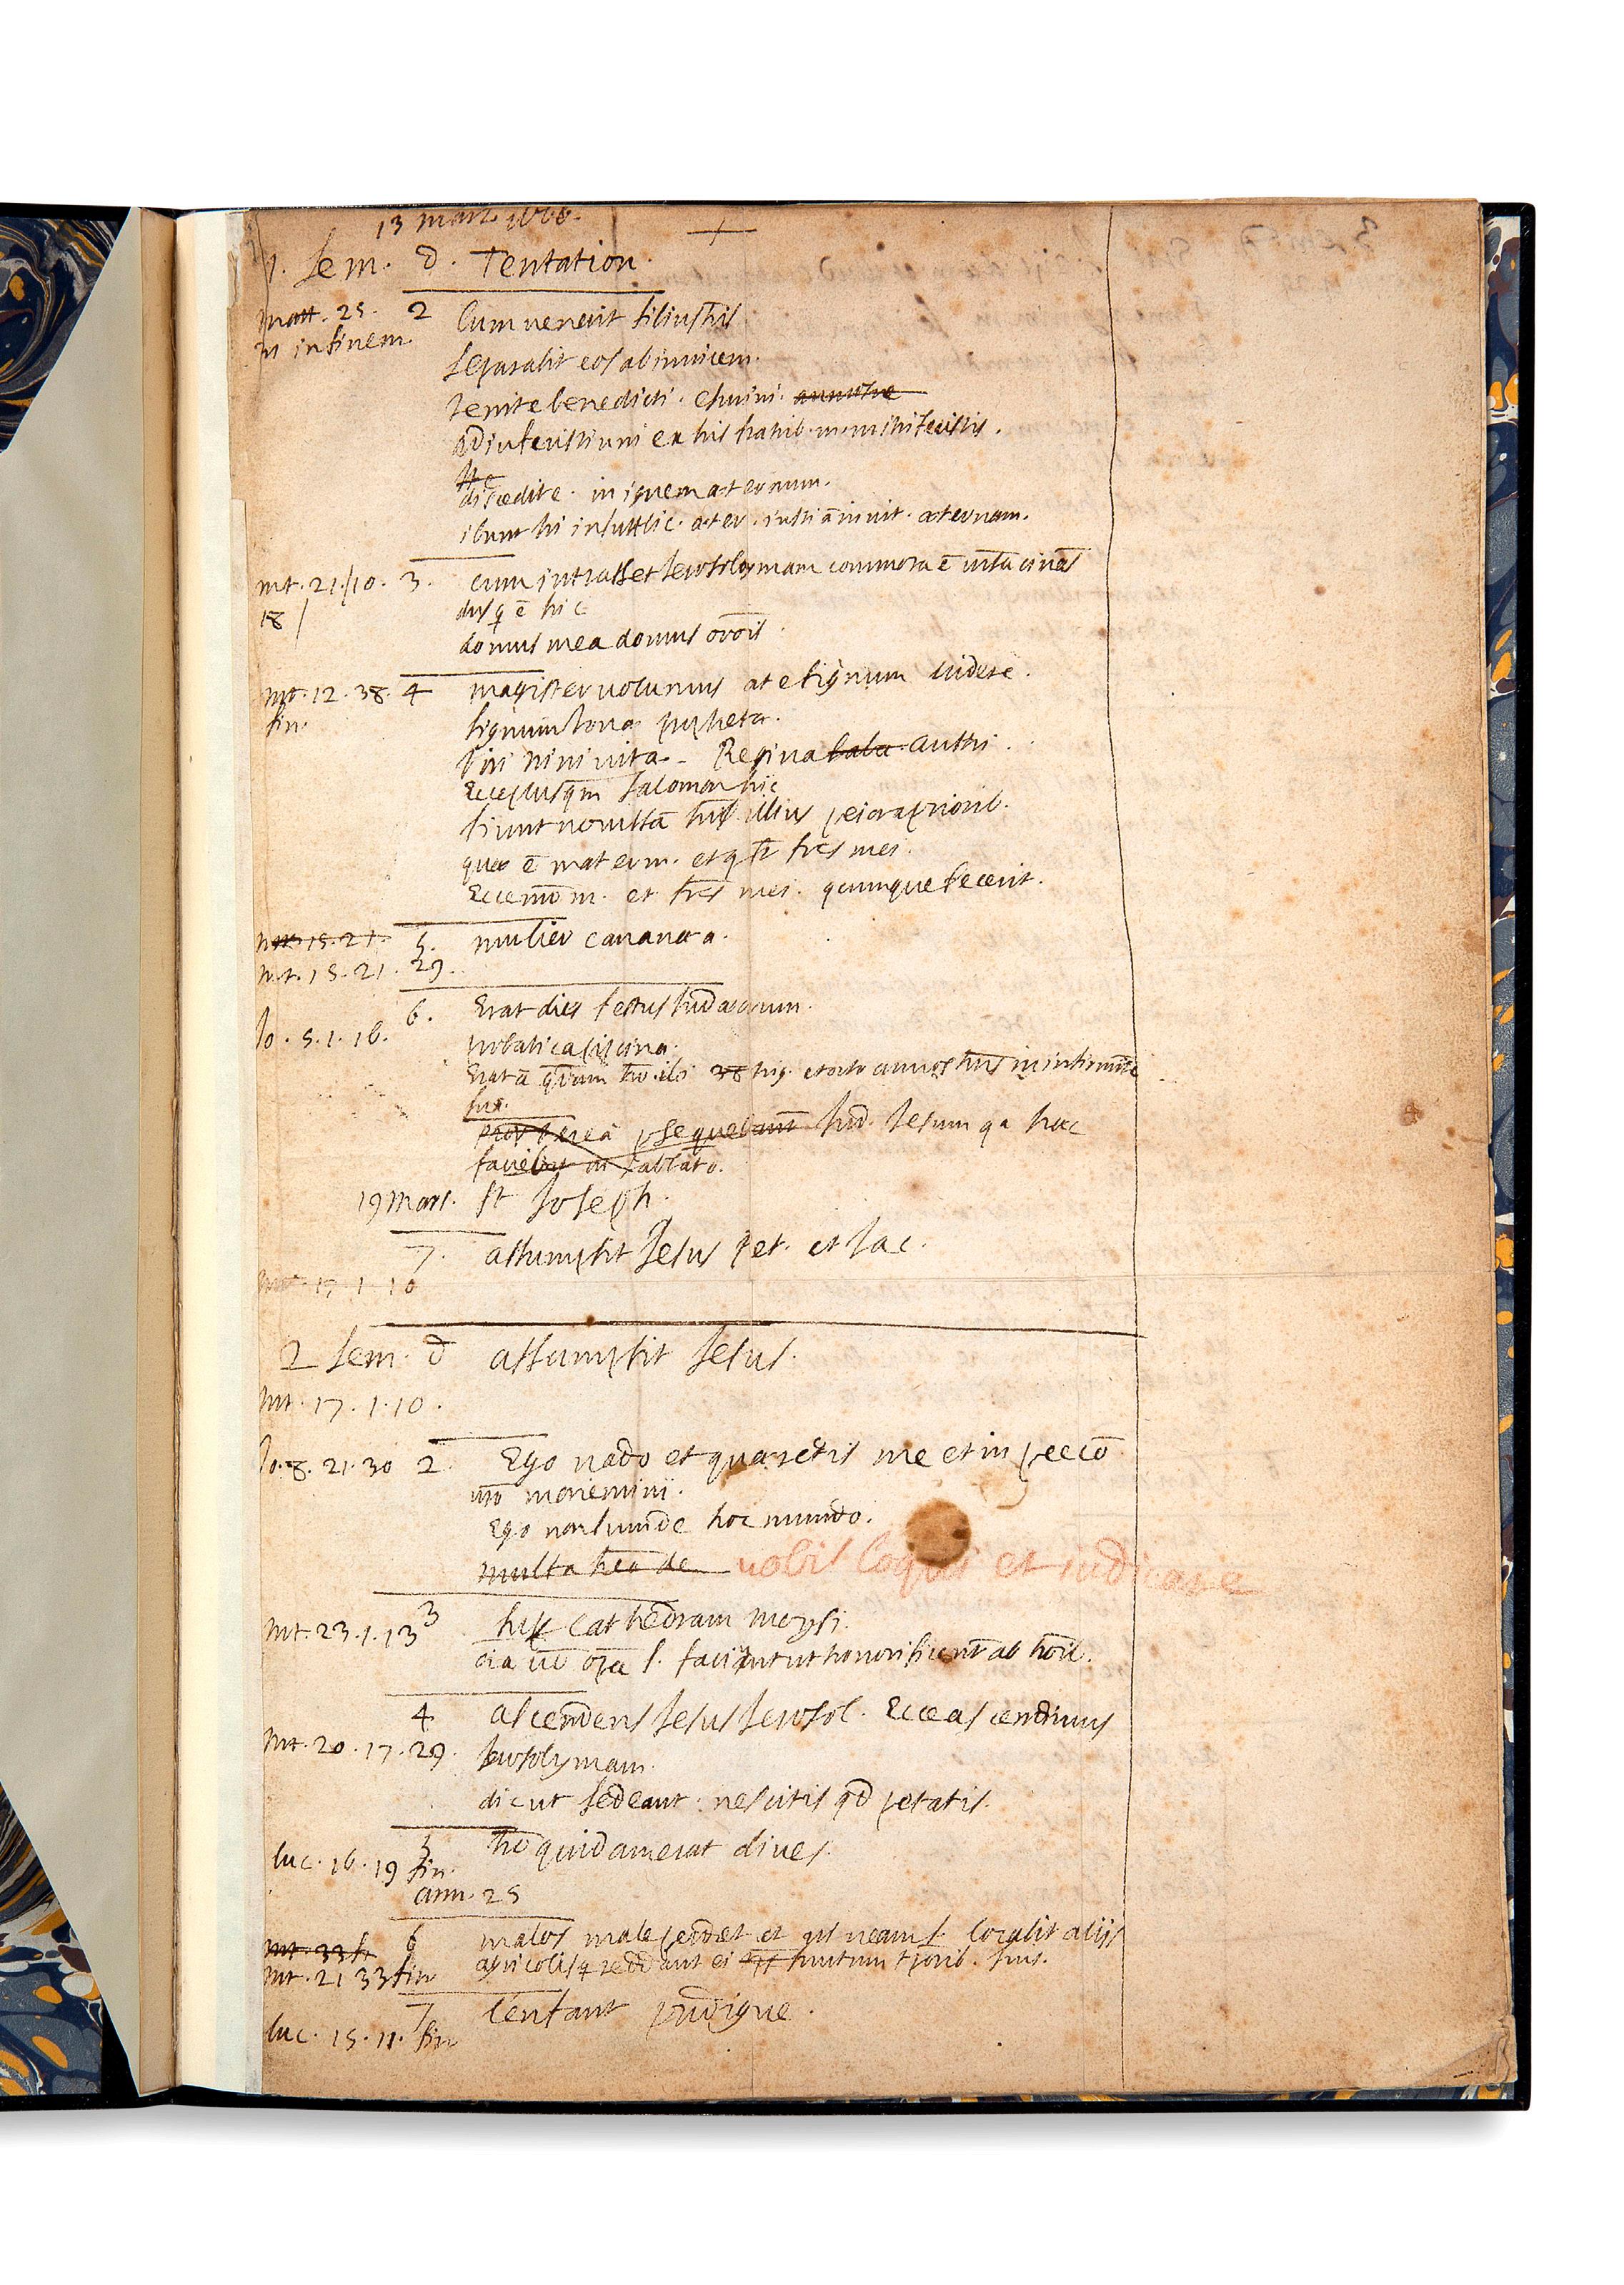 13 mart.
1. Sem. d. Tentation.
matt. 25. 2 Cum venerit filius his
in finem.
separabit eos ab invicem.
Venite benedicti.
discedite. in ignem aeternum.
ibunt hi in aeter. iusti ā in vit. aeternam.
mt. 21. 10. 3. cum intrasset Ierosolymam commota ē
18
plusq ē hic
domus mea domus orōis
mt. 12. 38. 4 magister volumus at e signum videre.
fin.
signum Iona propheta.
Viri ninivita. Regina Saba Austri.
Ecce plusqm Salomon hic
fiunt novissīa illius peiora priorib.
quae ē mater m. et q st frēs mei.
Ecce m. et frēs mei. qcumque fecerit.
mt. 15. 21. 5. mulier cananaea.
mt. 15. 21. 29.
Io. 5. 1. 16. 6. Erat dies festus Iudaeorum.
probatica piscina.
Erat ā ibi 38 trig. et octo annos in infirmit
sua.
propterea psequebant Iud. Iesum qa haec
faciebat in sabbato.
19 mars. St Joseph.
7. assumpsit Jesus pet. et Jac.
mt. 17. 1. 10
2 Sem. d assumpsit Jesus.
mt. 17. 1. 10.
Io. 8. 21. 30 2. Ego vado et quaeretis me et in pecco
vro moriemini.
Ego non sum de hoc mundo.
multa heo de vobis loqui et iudicare
mt. 23. 1. 13 3 sup cathedram moysi.
oia opera s. faciunt ut honorificent ab
4 ascendens Jesus Ierosol. Ecce ascendimus
mt. 20. 17. 29. Ierosolymam.
dic ut sedeant. nescitis qd petatis.
luc. 16. 19 5 ho quidam erat dives.
fin.
ann. 25
mt. 33 f. 6 malos male perdet et vineam s. locabit alijs
mt. 21 33 fin agricolis q reddant ei fructum tporib. suis.
7 L'enfant prodigue.
luc. 15. 11. fin